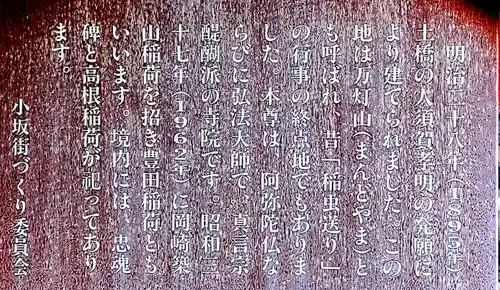 明治二十八年(1895年)
土橋の大須賀孝明の発願に
より建てられました。この
地は万灯山(まんどやま)と
も呼ばれ、昔「稲虫送り」
の行事の終点地でもありま
した。本尊は、阿弥陀仏な
らびに弘法大師で、真言宗
醍醐派の寺院です。昭和三
十七年(1962年)に岡崎築
山稲荷を招き豊田稲荷とも
いいます。境内には、忠魂
碑と高根稲荷が祀ってあり
ます。
小坂街づくり委員会